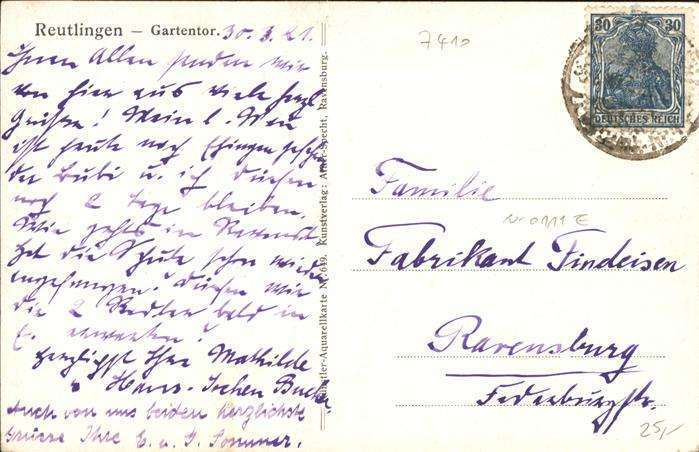 Reutlingen – Gartentor. 30.3.21.
Ihnen Allen senden wir
von hier aus viele herzl.
Grüsse! Mein l. Mann
ist heute nach Ehingen
der Bubi u. ich dürfen
noch 2 Tage bleiben.
Wie gehts in Ravensb.
Hat die Schule schon wieder
angefangen? Dürfen wir
die 2 bald in
E. erwarten?
Herzlichst Ihre Mathilde
u. Hans-Jochen
Auch von uns beiden herzlichste
Grüsse Ihre E. u. J. Sommer.
Künstler-Aquarellkarte No. 619. Kunstverlag: Specht, Ravensburg.
7410
30 30
DEUTSCHES REICH
Familie
No 0111 E
Fabrikant Findeisen
Ravensburg
Federburgstr.
25,-